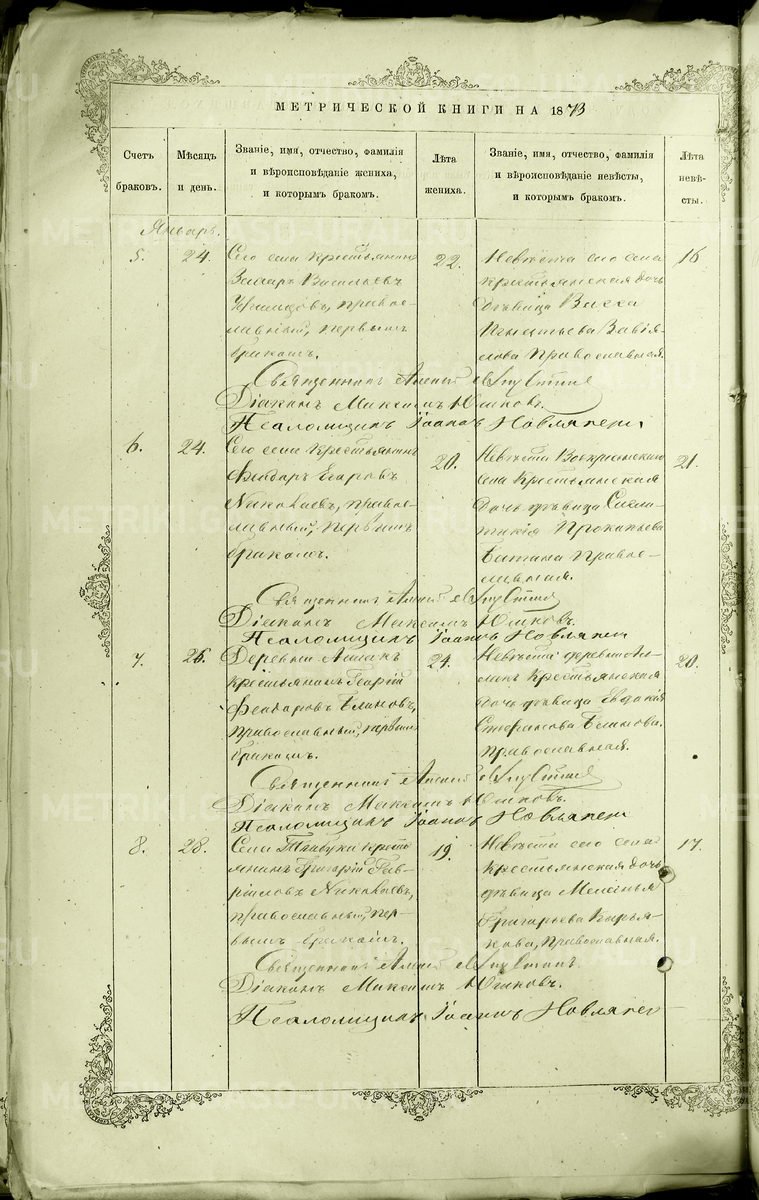 МЕТРИЧЕСКОЙ КНИГИ НА 1873
Счетъ браковъ.
Мѣсяцъ и день.
Званіе, имя, отчество, фамилія и вѣроисповѣданіе жениха, и которымъ бракомъ.
Лѣта жениха.
Званіе, имя, отчество, фамилія и вѣроисповѣданіе невѣсты, и которымъ бракомъ.
Лѣта невѣсты.
Январь.
5. 24.
Сего села крестьянинъ
Захаръ Васильевъ
правос-
лавный, первымъ
бракомъ.
22.
Невѣста сего села
крестьянская дочь
дѣвица Васса
Игнатьева Завья-
лова Православная.
16
Священникъ
Діаконъ Максимъ Юшковъ.
Псаломщикъ Іоаннъ
6. 24.
Сего села крестьянинъ
Феодоръ Егоровъ
Николаевъ, правос-
лавный, первымъ
бракомъ.
20.
Невѣста Воскресенскаго
села Крестьянская
дочь дѣвица
Прокопьева
правос-
лавная.
21.
Священникъ
Діаконъ Максимъ Юшковъ.
Псаломщикъ Іоаннъ
7. 26.
Деревни
крестьянинъ Георгій
Феодоровъ
православный, первымъ
бракомъ.
24.
Невѣста деревни
Крестьянская
дочь дѣвица Евдокія
Стефанова
православная.
20.
Священникъ
Діаконъ Максимъ Юшковъ.
Псаломщикъ Іоаннъ
8. 28.
Села кресть-
янинъ Григорій Гав-
риловъ Николаевъ,
православный, пер-
вымъ бракомъ.
19.
Невѣста сего села
крестьянская дочь
дѣвица
Григорьева Кирья-
кова, православная.
17.
Священникъ
Діаконъ Максимъ Юшковъ.
Псаломщикъ Іоаннъ
METRIKI.GASO-URAL.RU